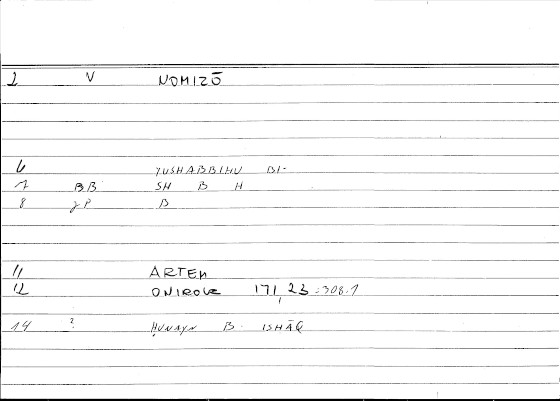 2 V NOMIZŌ
6 YUSHABBIHU BI-
7 BB SH B H
8 γP B
11 ARTEM
12 ONIROCR 171,23:308.1
14 ? ḤUNAYN B. ISḤĀQ